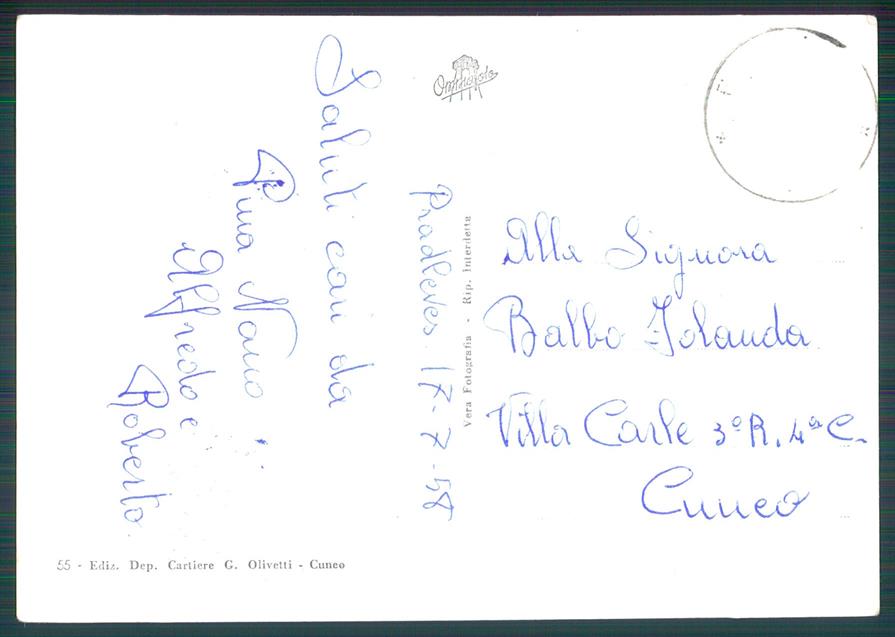 Pradleves 17-7-58
Saluti cari da
Pina Nano
Alfredo e
Roberto
Vera Fotografia - Rip. Interdetta
Alla Signora
Balbo Jolanda
Villa Carle 3º R. 4ª C.
Cuneo
55 - Ediz. Dep. Cartiere G. Olivetti - Cuneo